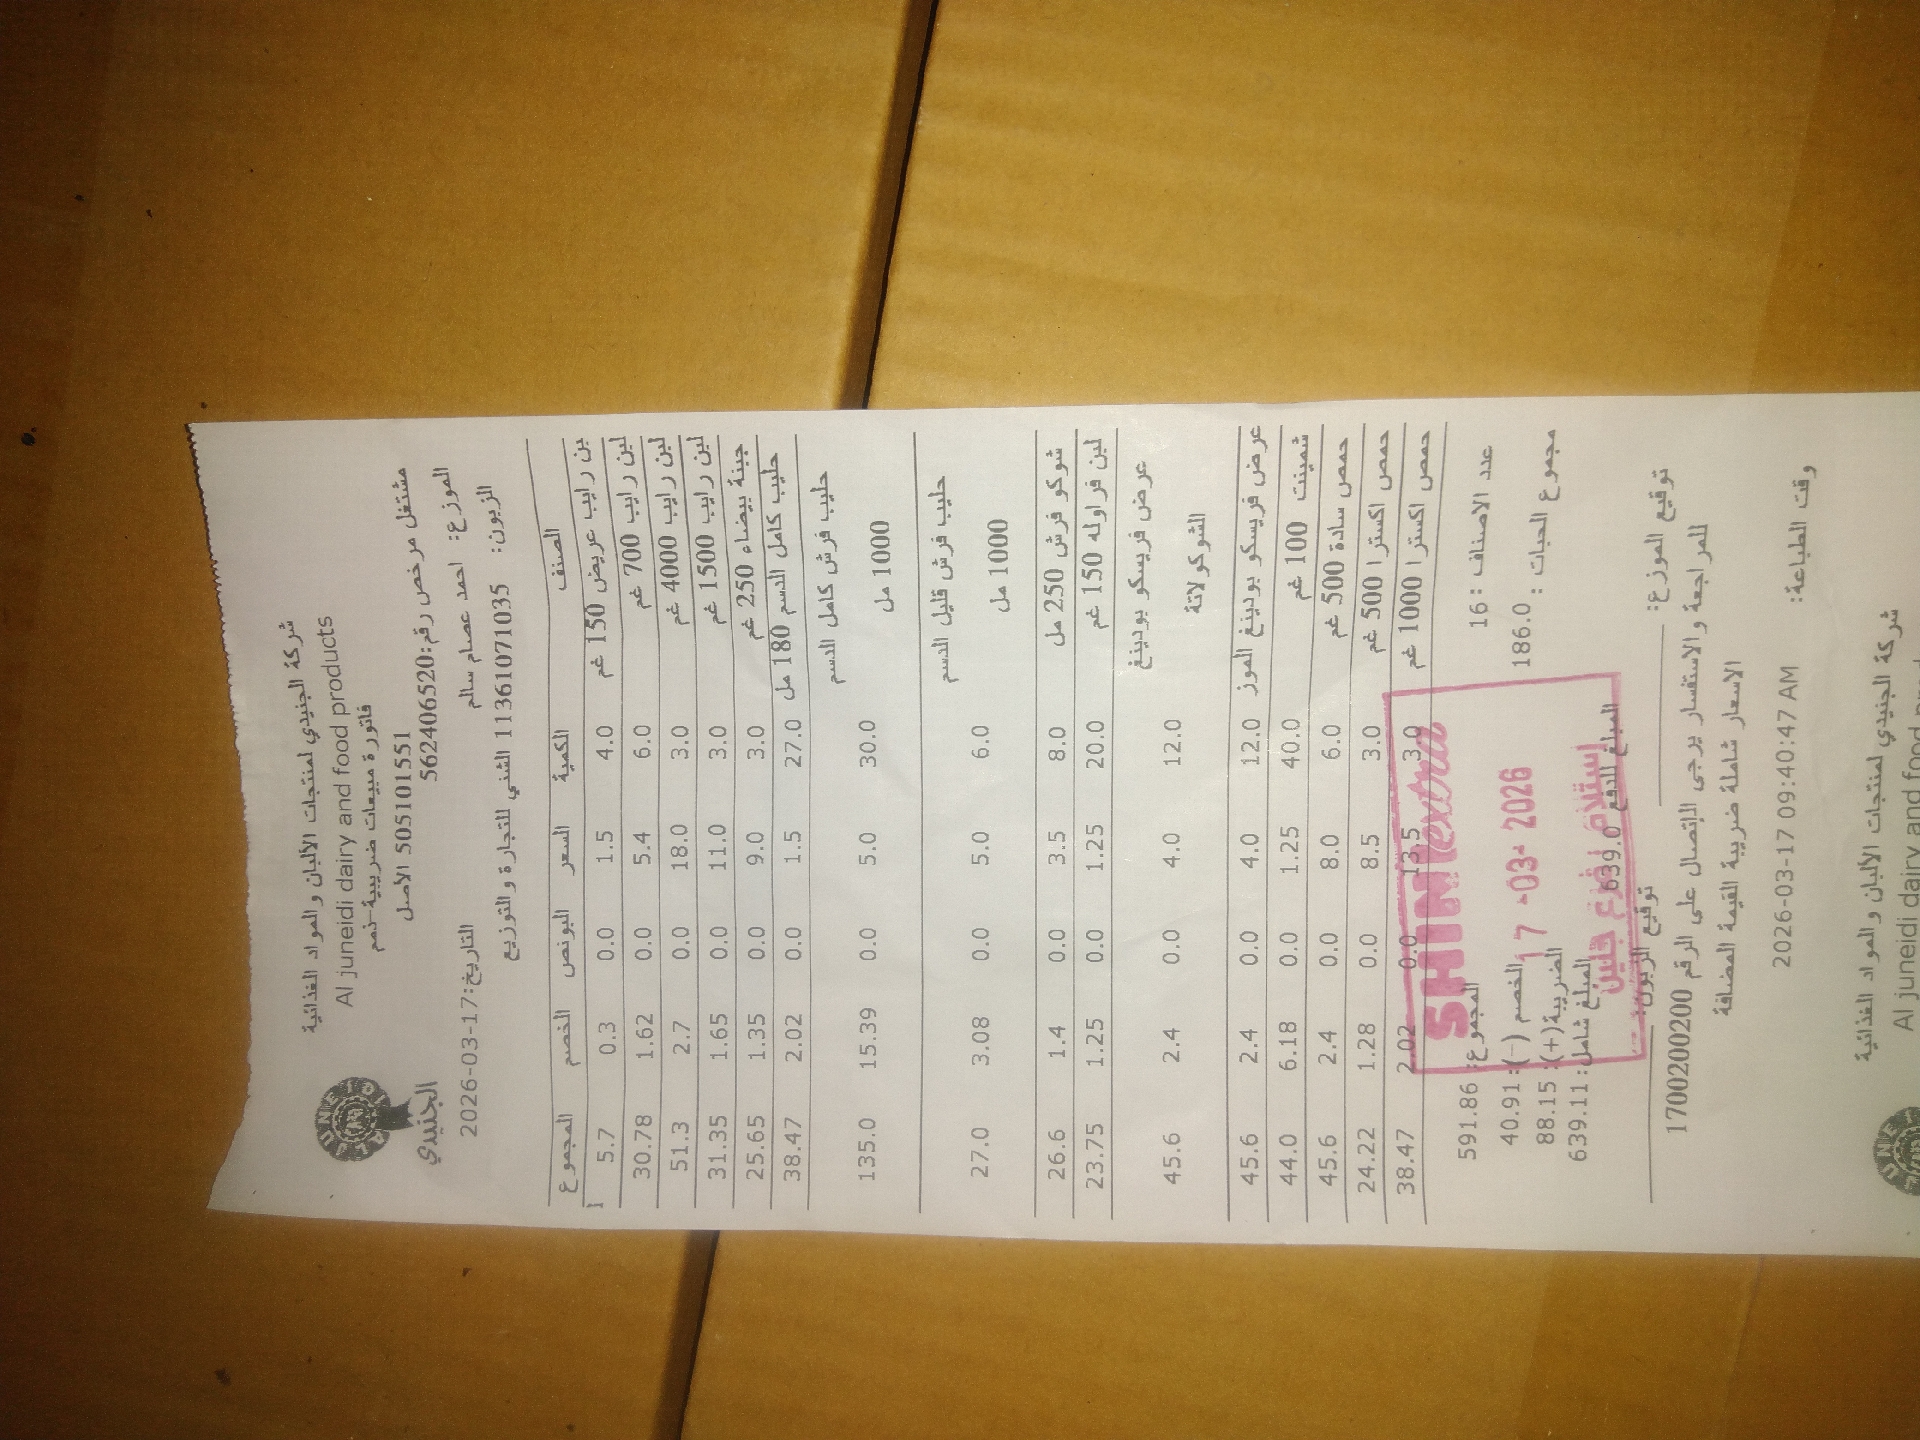 شركة الجنيدي لمنتجات الألبان والمواد الغذائية
Al juneidi dairy and food products
فاتورة مبيعات ضريبية-ذمم
505101551 الاصل
مشتغل مرخص رقم:562406520
JUNEIDI
الجنيدي
الموزع: احمد عصام سالم
التاريخ:2026-03-17
الزبون: 11361071035 الشني للتجارة والتوزيع
الصنف الكمية السعر البونص الخصم المجموع
رايب عريض 150 غم 4.0 1.5 0.0 0.3 5.7
لبن رايب 700 غم 6.0 5.4 0.0 1.62 30.78
لبن رايب 4000 غم 3.0 18.0 0.0 2.7 51.3
لبن رايب 1500 غم 3.0 11.0 0.0 1.65 31.35
جبنة بيضاء 250 غم 3.0 9.0 0.0 1.35 25.65
حليب كامل الدسم 180 مل 27.0 1.5 0.0 2.02 38.47
حليب فرش كامل الدسم
1000 مل 30.0 5.0 0.0 15.39 135.0
حليب فرش قليل الدسم
1000 مل 6.0 5.0 0.0 3.08 27.0
شوكو فرش 250 مل 8.0 3.5 0.0 1.4 26.6
لبن فراوله 150 غم 20.0 1.25 0.0 1.25 23.75
عرض فريسكو بودينغ
الشوكولاتة 12.0 4.0 0.0 2.4 45.6
عرض فريسكو بودينغ الموز 12.0 4.0 0.0 2.4 45.6
شمينت 100 غم 40.0 1.25 0.0 6.18 44.0
حمص سادة 500 غم 6.0 8.0 0.0 2.4 45.6
حمص اكسترا 500 غم 3.0 8.5 0.0 1.28 24.22
حمص اكسترا 1000 غم 3.0 13.5 0.0 2.02 38.47
عدد الاصناف : 16
المجموع: 591.86
مجموع الحبات : 186.0
الخصم (-): 40.91
الضريبة(+): 88.15
المبلغ شامل: 639.11
المبلغ للدفع 639.0
SHINI extra
17 -03- 2026
إستلام فرع جنين
توقيع الموزع:
توقيع الزبون:
للمراجعة والاستفسار يرجى الاتصال على الرقم 1700200200
الاسعار شاملة ضريبة القيمة المضافة
وقت الطباعة: 2026-03-17 09:40:47 AM
شركة الجنيدي لمنتجات الألبان والمواد الغذائية
Al juneidi dairy and food